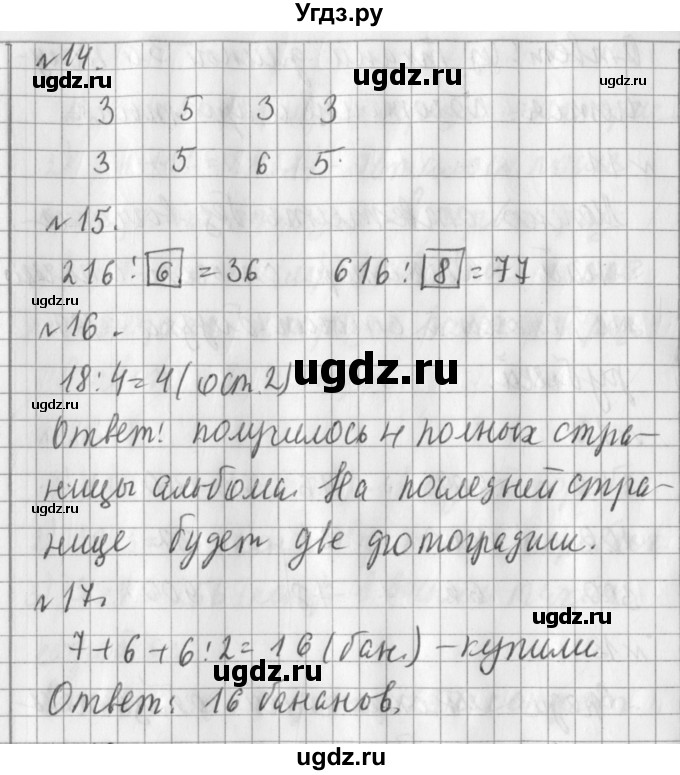 Угдз.ру
№14.
ugdz.ru ugdz.ru ugdz.ru
3 5 3 3
3 5 6 5.
№15.
216 : 6 = 36 616 : 8 = 77
ugdz.ru
№16.
ugdz.ru
18:4=4(ост.2)
ugdz.ru
Ответ: получилось 4 полных стра-
ницы альбома. На последней стра-
ugdz.ru
нице будет две фотографии.
№17.
ugdz.ru
7+6+6:2=16(бан.) - купили
Ответ: 16 бананов.
ugdz.ru ugdz.ru
ugdz.ru